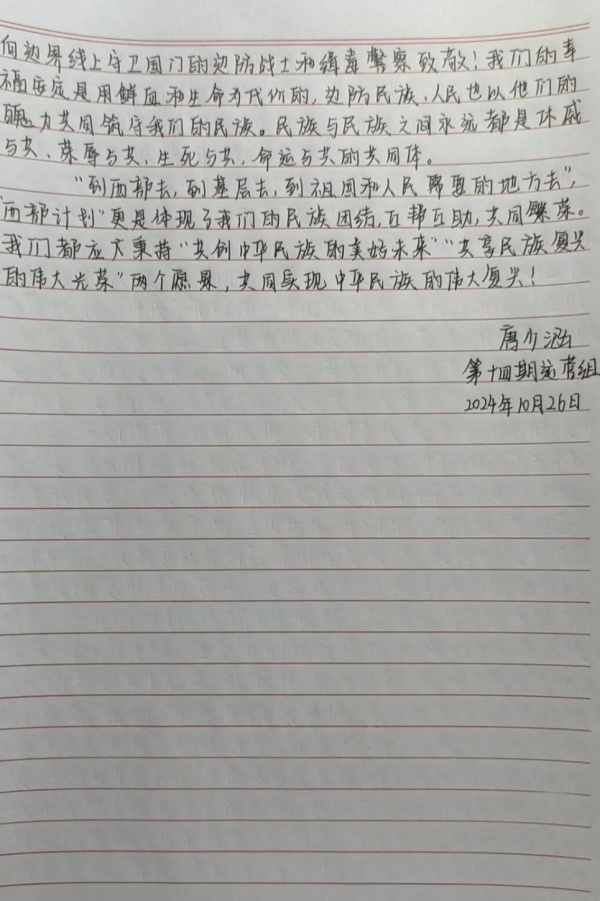 向边界线上守卫国门的边防战士和缉毒警察致敬！我们的幸
福安定是用鲜血和生命为代价的，边防民族、人民也以他们的
魄力共同筑守我们的民族。民族与民族之间永远都是休戚
与共、荣辱与共，生死与共，命运与共的共同体。
“到西部去，到基层去，到祖国和人民需要的地方去”，
“西部计划”更是体现了我们的民族团结，互帮互助，共同繁荣。
我们都应秉持“共创中华民族的美好未来”“共享民族复兴
的伟大光荣”两个愿景，共同实现中华民族的伟大复兴！
唐少涵
第十四期运营组
2024年10月26日